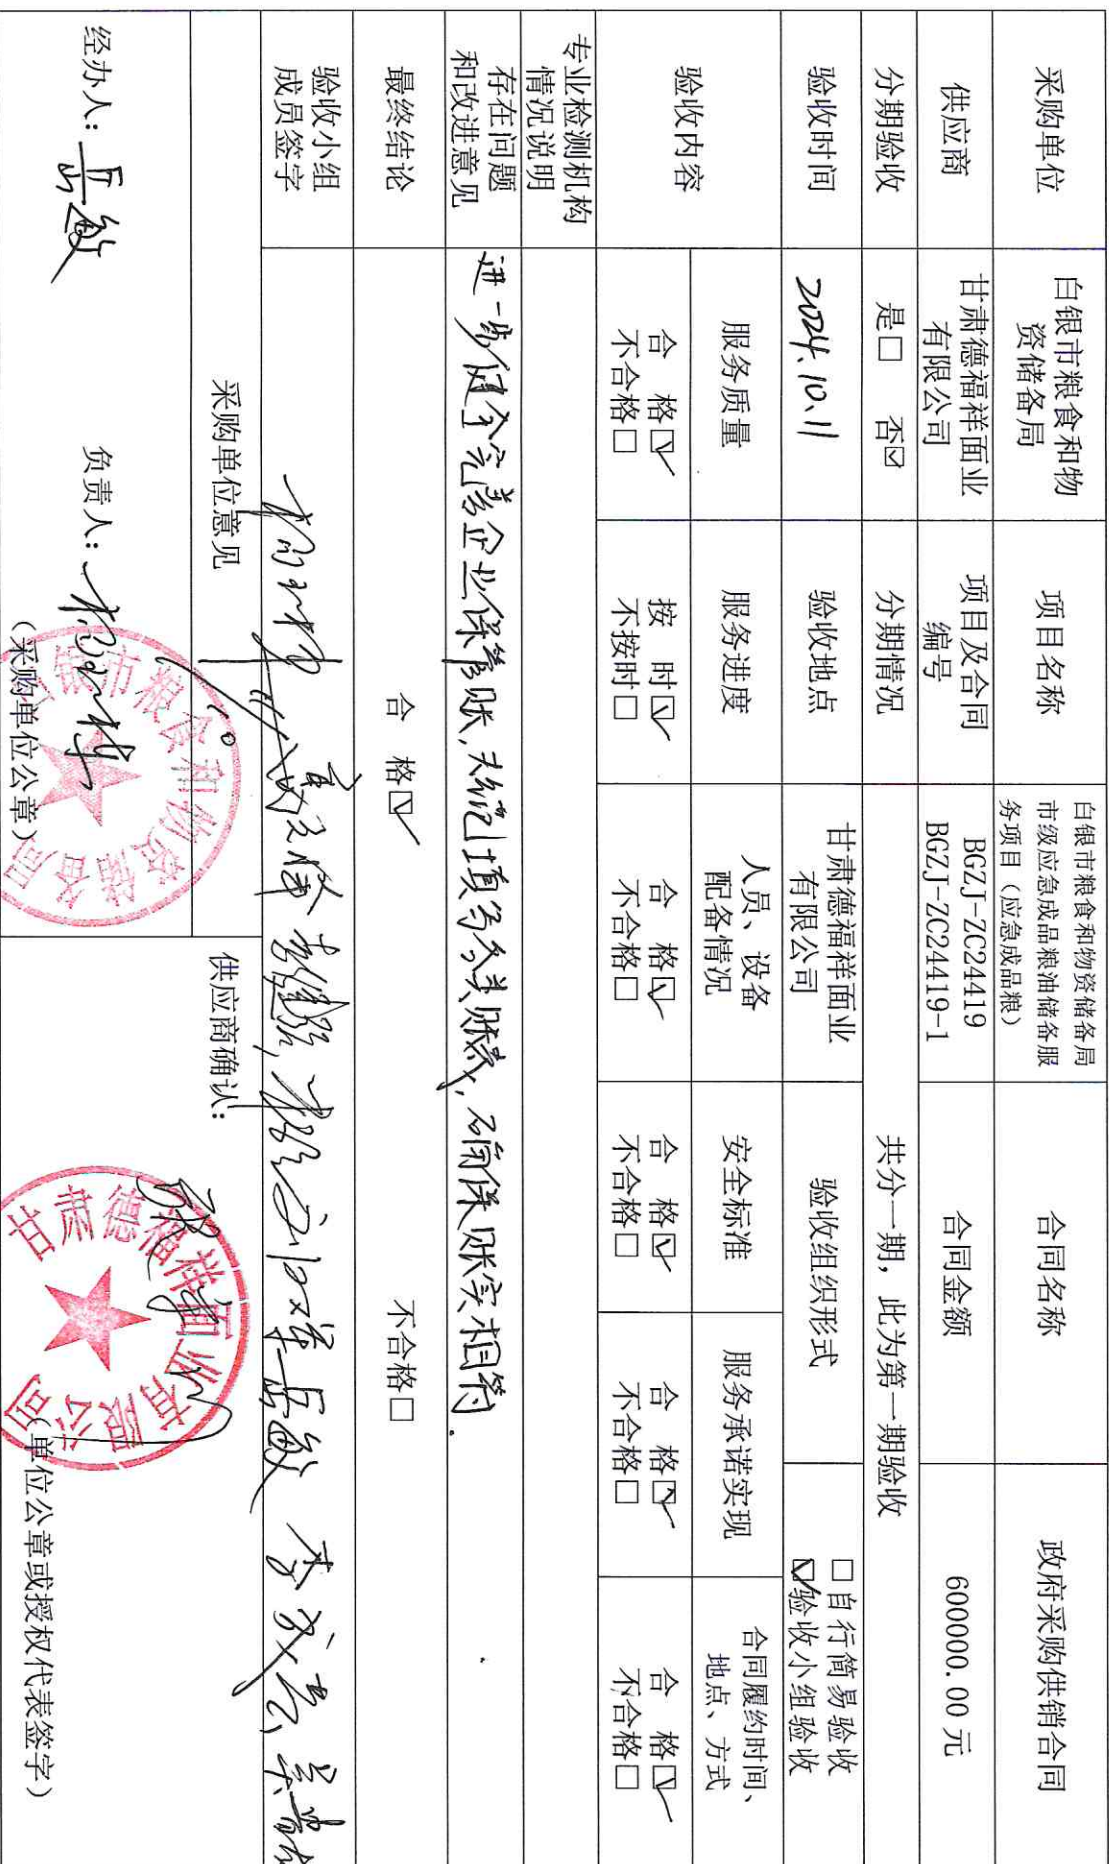 采购单位
白银市粮食和物
资储备局
项目名称
白银市粮食和物资储备局
市级应急成品粮油储备服
务项目（应急成品粮）
合同名称
政府采购供销合同
供应商
甘肃德福祥面业
有限公司
项目及合同
编号
BGZJ-ZC24419
BGZJ-ZC24419-1
合同金额
600000.00 元
分期验收
是□ 否☑
分期情况
共分一期，此为第一期验收
验收时间
2024.10.11
验收地点
甘肃德福祥面业
有限公司
验收组织形式
□自行简易验收
☑验收小组验收
验收内容
服务质量
服务进度
人员、设备
配备情况
安全标准
服务承诺实现
合同履约时间、
地点、方式
合 格☑
不合格□
按 时☑
不按时□
合 格☑
不合格□
合 格☑
不合格□
合 格☑
不合格□
合 格☑
不合格□
专业检测机构
情况说明
存在问题
和改进意见
进一步健全完善企业保管账,规范填写各类账表,确保账实相符.
最终结论
合 格☑
不合格□
验收小组
成员签字
岳敏
采购单位意见
供应商确认：
经办人：岳敏
负责人：
（采购单位公章）
白银市粮食和物资储备局
甘肃德福祥面业有限公司
（单位公章或授权代表签字）